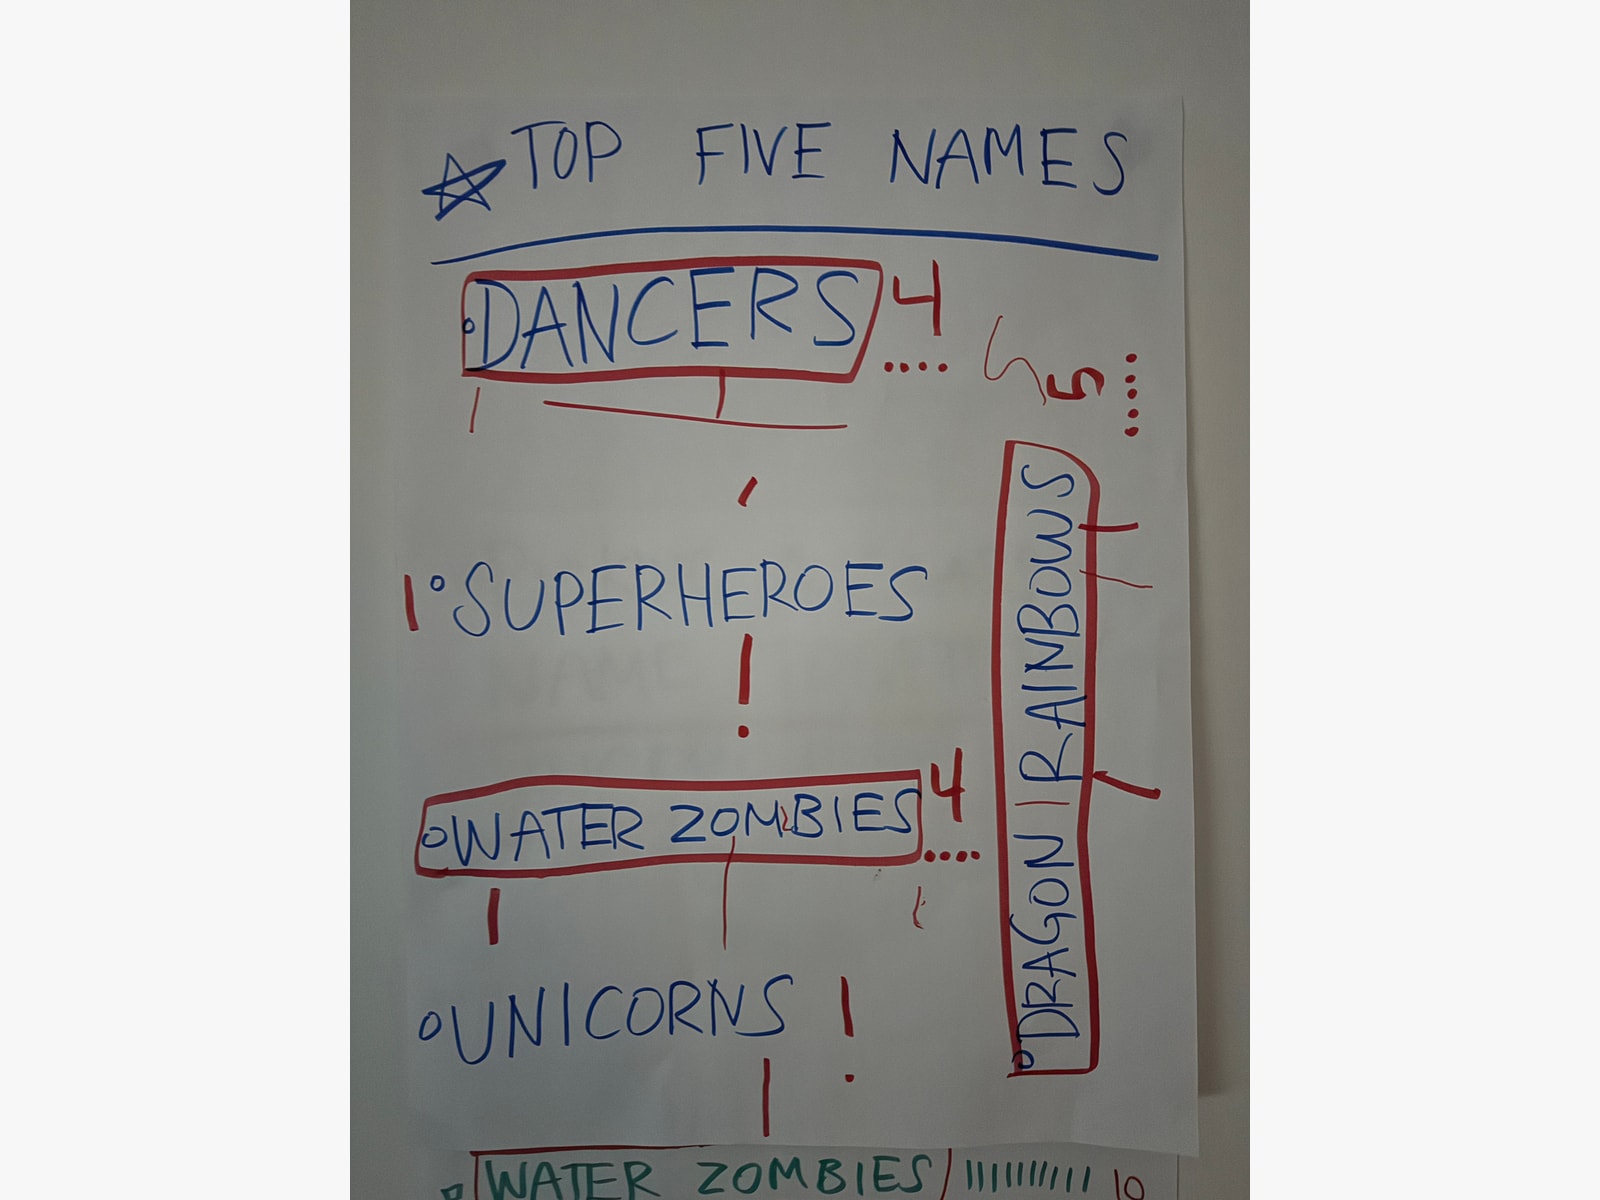 TOP FIVE NAMES
DANCERS 4
5
SUPERHEROES
WATER ZOMBIES 4
UNICORNS
DRAGON RAINBOWS
WATER ZOMBIES 10